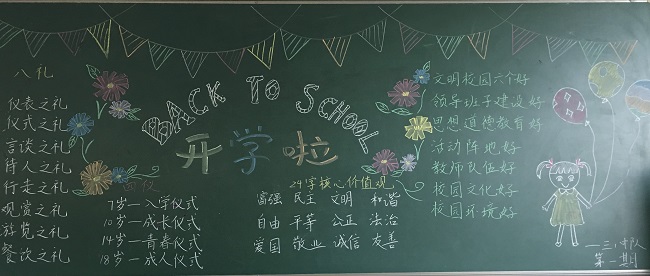 八礼
仪表之礼
仪式之礼
言谈之礼
待人之礼
行走之礼
观赏之礼
游览之礼
餐饮之礼
BACK TO SCHOOL
开学啦
四仪
7岁—入学仪式
10岁—成长仪式
14岁—青春仪式
18岁—成人仪式
24字核心价值观
富强 民主 文明 和谐
自由 平等 公正 法治
爱国 敬业 诚信 友善
文明校园六个好
领导班子建设好
思想道德教育好
活动阵地好
教师队伍好
校园文化好
校园环境好
一三中队
第一期